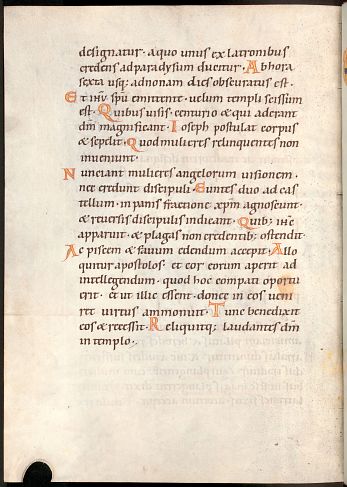 designatur · a quo unus ex latronibus
credens ad paradysum ducitur · Ab hora
sexta usq; ad nonam dies obscuratus est ·
Et ihu spm emittente · uelum templi scissum
est · Quibus uisis · centurio & qui aderant
dm magnificant · Ioseph postulat corpus
& sepelit · Quod mulieres relinquentes non
inueniunt ·
Nunciant mulieres angelorum uisionem ·
nec credunt discipuli · Euntes duo ad cas
tellum · in panis fractione xpm agnoscunt ·
& reuersis discipulis indicant · Quib; ihc
apparuit · & plagas non credentib; ostendit
Ac piscem & fauum edendum accepit · Allo
quitur apostolos · et cor eorum aperit ad
intellegendum · quod hoc eum pati oportu
erit · et ut illic essent · donec in eos ueni
ret uirtus ammonuit · Tunc benedixit
eos & recessit · Reliquitq; laudantes dm
in templo ·